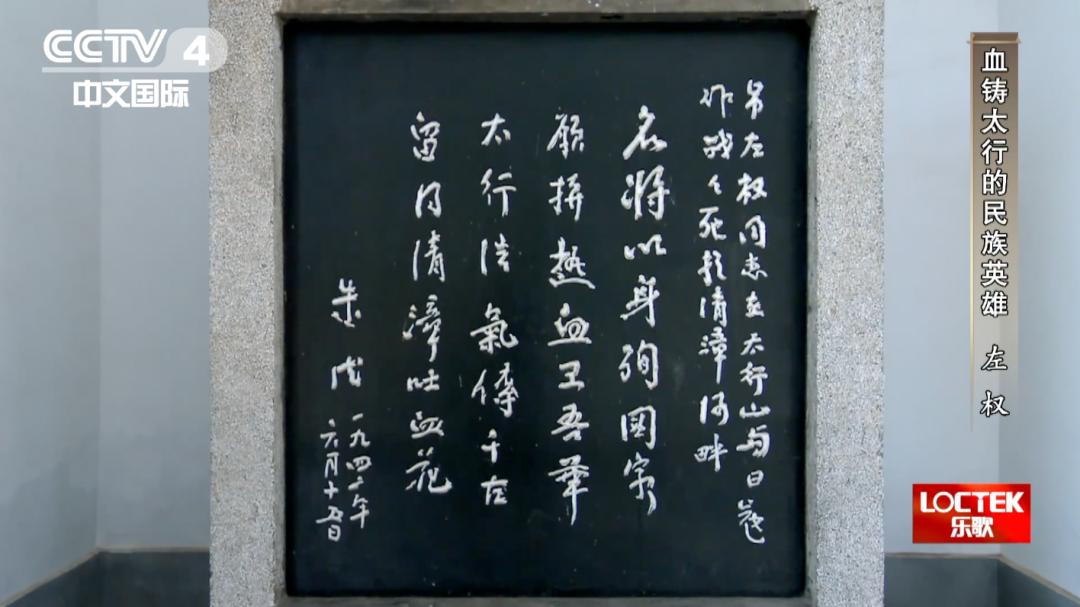 CCTV 4
中文国际
吊左权同志在太行山与日寇
作战々死於清漳河畔
名将以身殉國家
願拼热血卫吾華
太行浩氣傳千古
留得清漳吐血花
朱德
一九四二年
六月十五日
血铸太行的民族英雄 左权
LOCTEK
乐歌